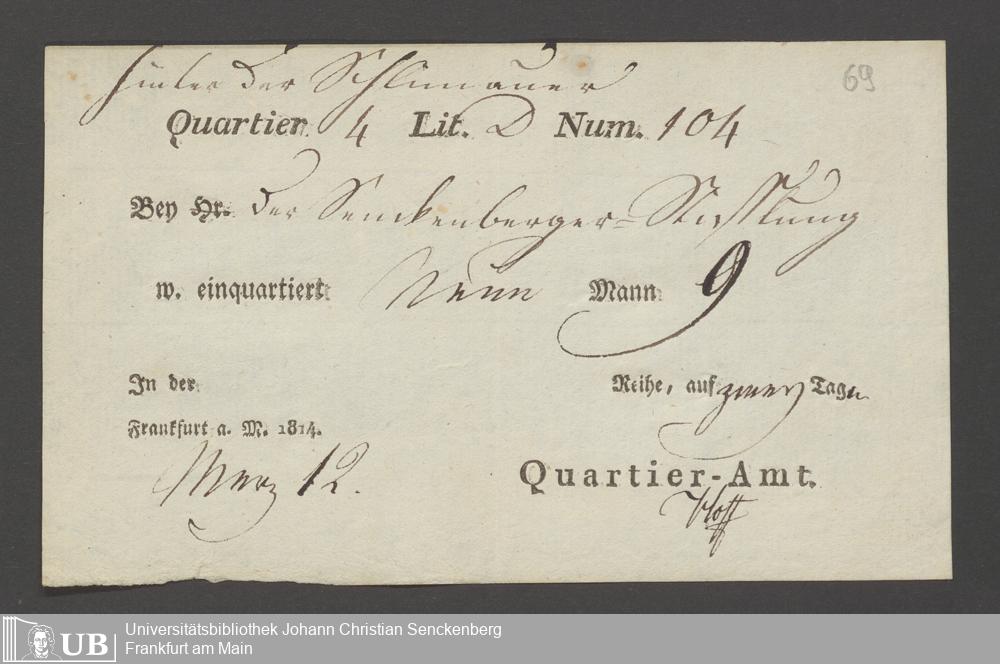 hinter der Schlimauer
69
Quartier 4 Lit. D Num. 104
Bey Hr. der Senckenberger=Stifftung
w. einquartiert Neun Mann 9
In der Reihe, auf zwey Tage
Frankfurt a. M. 1814.
Merz 12.
Quartier-Amt.
UB
Universitätsbibliothek Johann Christian Senckenberg
Frankfurt am Main